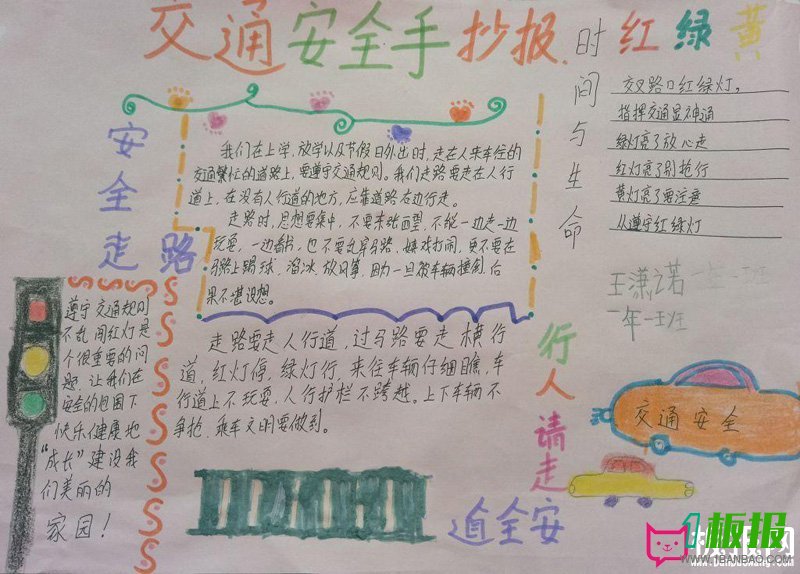 交通安全手抄报
时间与生命
红绿黄
交叉路口红绿灯,
指挥交通显神通
绿灯亮了放心走
红灯亮了别抢行
黄灯亮了要注意
人从遵守红绿灯
王潇
一年一班
一年一班
安全走路
我们在上学,放学以及节假日外出时,走在人来车往的
交通繁忙的道路上,要遵守交通规则。我们走路要走在人行
道上,在没有人行道的地方,应靠道路右边行走。
走路时,思想要集中,不要东张西望,不能一边走一边
玩耍,一边看书,也不要乱穿马路,嬉戏打闹,更不要在
马路上踢球,溜冰,放风筝,因为一旦被车辆撞倒,后
果不堪设想。
遵守交通规则
不乱闯红灯是
个很重要的问
题,让我们在
安全的包围下
快乐健康地
“成长”建设我
们美丽的
家园!
走路要走人行道,过马路要走横行
道,红灯停,绿灯行,来往车辆仔细瞧,车
行道上不玩耍,人行护栏不跨越。上下车辆不
争抢,乘车文明要做到。
行人请走
安全道
交通安全
1板报
WWW.1BANBAO.COM